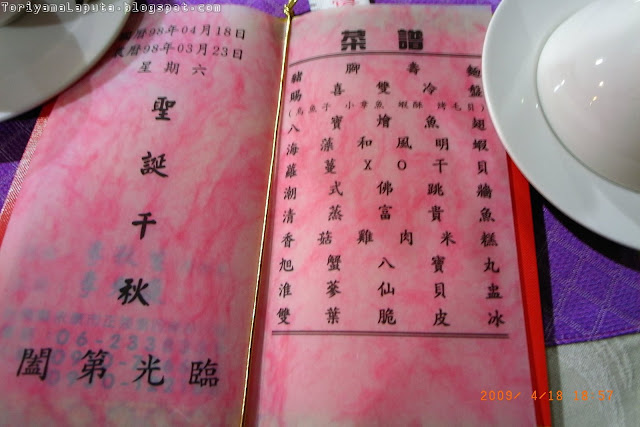 ToriyamaLaputa.blogspot.com
曆98年04月18日
曆98年03月23日
星期六
聖誕千秋
闔第光臨
菜譜
豬腳壽麵
賜喜雙冷盤
(烏魚子 小章魚 蝦酥 烤毛貝)
八寶燴魚翅
海藻和風明蝦
蘿蔓XO干貝
潮式佛跳牆
清蒸富貴魚
香菇雞肉米糕
旭蟹八寶丸
淮蔘八仙貝盅
雙葉脆皮冰
2009/ 4/18